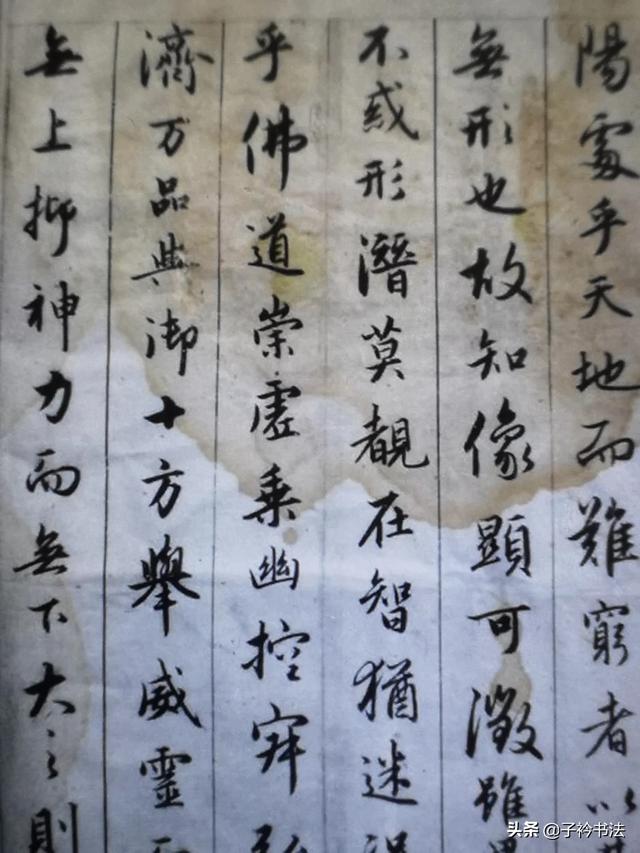 陽處乎天地而難窮者以
無形也故知像顯可徵雖
不惑形潛莫覩在智猶迷
乎佛道崇虛乘幽控寂
濟万品典御十方舉威靈
無上抑神力而無下大之則
头条 @子衿书法